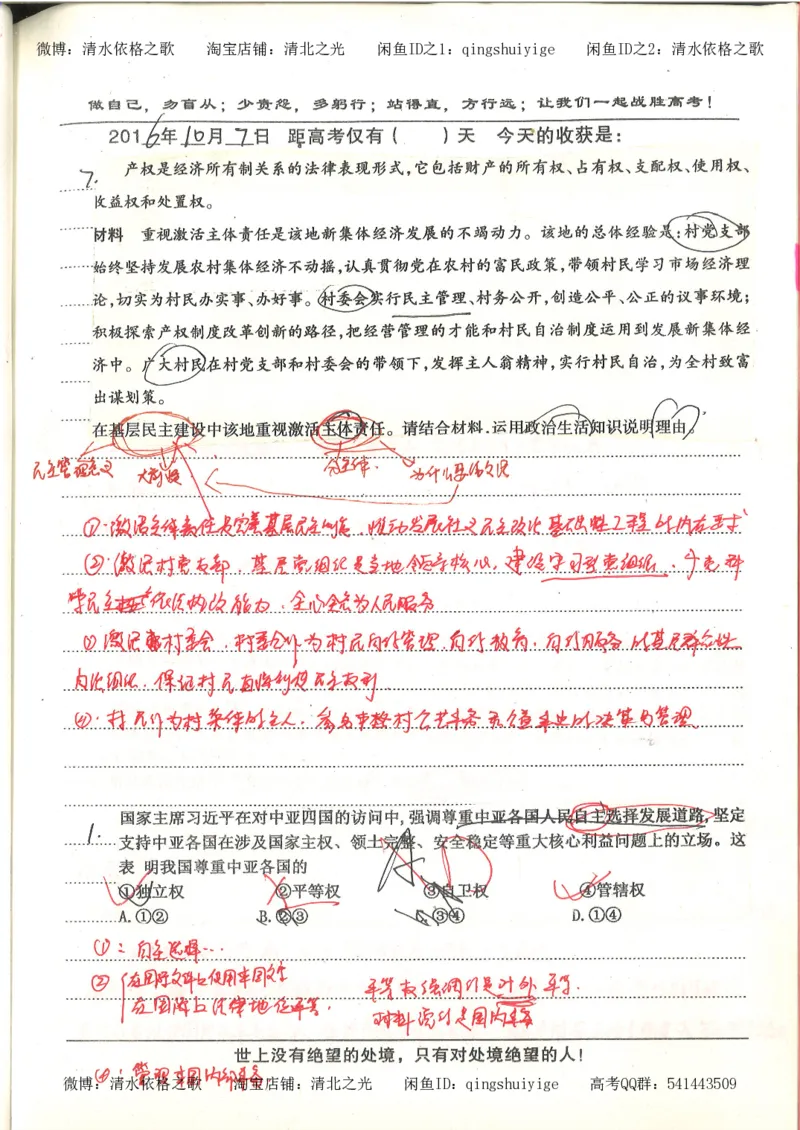 微博：清水依格之歌 淘宝店铺：清北之光 闲鱼ID之1：qingshuiyige 闲鱼ID之2：清水依格之歌
做自己，勿盲从；少责怨，多躬行；站得直，方行远；让我们一起战胜高考！
2016年10月7日 距高考仅有（ ）天 今天的收获是：
7. 产权是经济所有制关系的法律表现形式，它包括财产的所有权、占有权、支配权、使用权、
收益权和处置权。
材料 重视激活主体责任是该地新集体经济发展的不竭动力。该地的总体经验是：村党支部
始终坚持发展农村集体经济不动摇，认真贯彻党在农村的富民政策，带领村民学习市场经济理
论，切实为村民办实事、办好事。村委会实行民主管理、村务公开，创造公平、公正的议事环境；
积极探索产权制度改革创新的路径，把经营管理的才能和村民自治制度运用到发展新集体经
济中。广大村民在村党支部和村委会的带领下，发挥主人翁精神，实行村民自治，为全村致富
出谋划策。
在基层民主建设中该地重视激活主体责任。请结合材料，运用政治生活知识说明理由。
民主管理意义 分主体. 为什么要激活
①·激活主体责任是完善基层民主制度，推动发展社会主义民主政治基础性工程的内在要求
②·激活村党支部，基层党组织是当地领导核心，建设学习型党组织，
依法执政能力，全心全意为人民服务
激活村委会，村委会作为村民自我管理，自我教育，自我服务的基层群众性
自治组织，保证村民直接行使民主权利
④·村民作为村集体的主人，参与本村公共事务和公益事业的决策与管理
1. 国家主席习近平在对中亚四国的访问中，强调尊重中亚各国人民自主选择发展道路，坚定
支持中亚各国在涉及国家主权、领土完整、安全稳定等重大核心利益问题上的立场。这
表 明我国尊重中亚各国的
①独立权 ②平等权 ③自卫权 ④管辖权
A.①② B.②③ C.③④ D.①④
①：自主选择…
② 在国际文件上使用本国文字 平等权强调的是对外平等.
在国际上法律地位平等. 材料说的是国内事务
世上没有绝望的处境，只有对处境绝望的人！
④：管理本国内部事务
微博：清水依格之歌 淘宝店铺：清北之光 闲鱼ID：qingshuiyige 高考QQ群：541443509